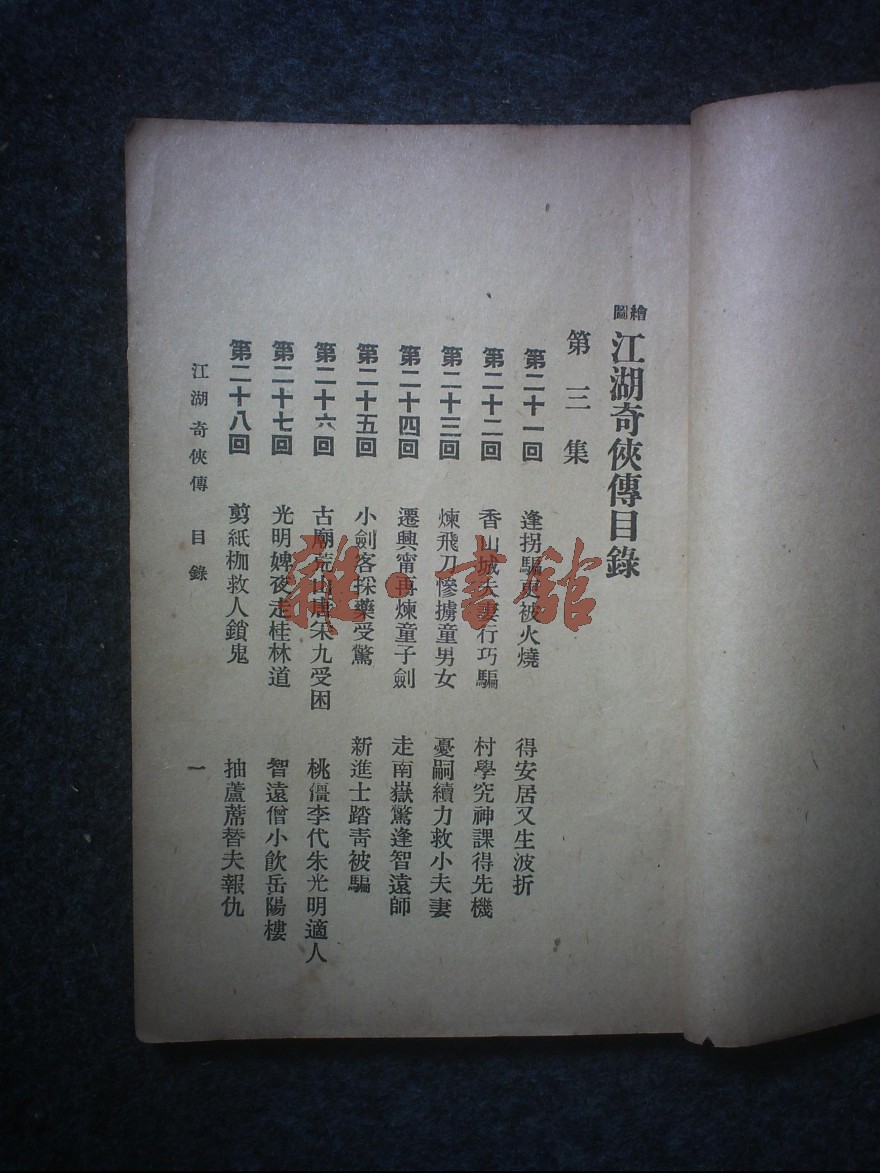 繪圖
江湖奇俠傳目錄
第三集
第二十一回 逢拐騙更被火燒 得安居又生波折
第二十二回 香山城夫妻行巧騙 村學究神課得先機
第二十三回 煉飛刀慘擄童男女 憂嗣續力救小夫妻
第二十四回 遷興甯再煉童子劍 走南嶽驚逢智遠師
第二十五回 小劍客採藥受驚 新進士踏青被騙
第二十六回 古廟荒山唐宋九受困 桃僵李代朱光明適人
第二十七回 光明婢夜走桂林道 智遠僧小飲岳陽樓
第二十八回 剪紙枷救人鎖鬼 抽蘆蓆替夫報仇
江湖奇俠傳 目錄 一
雜·書館